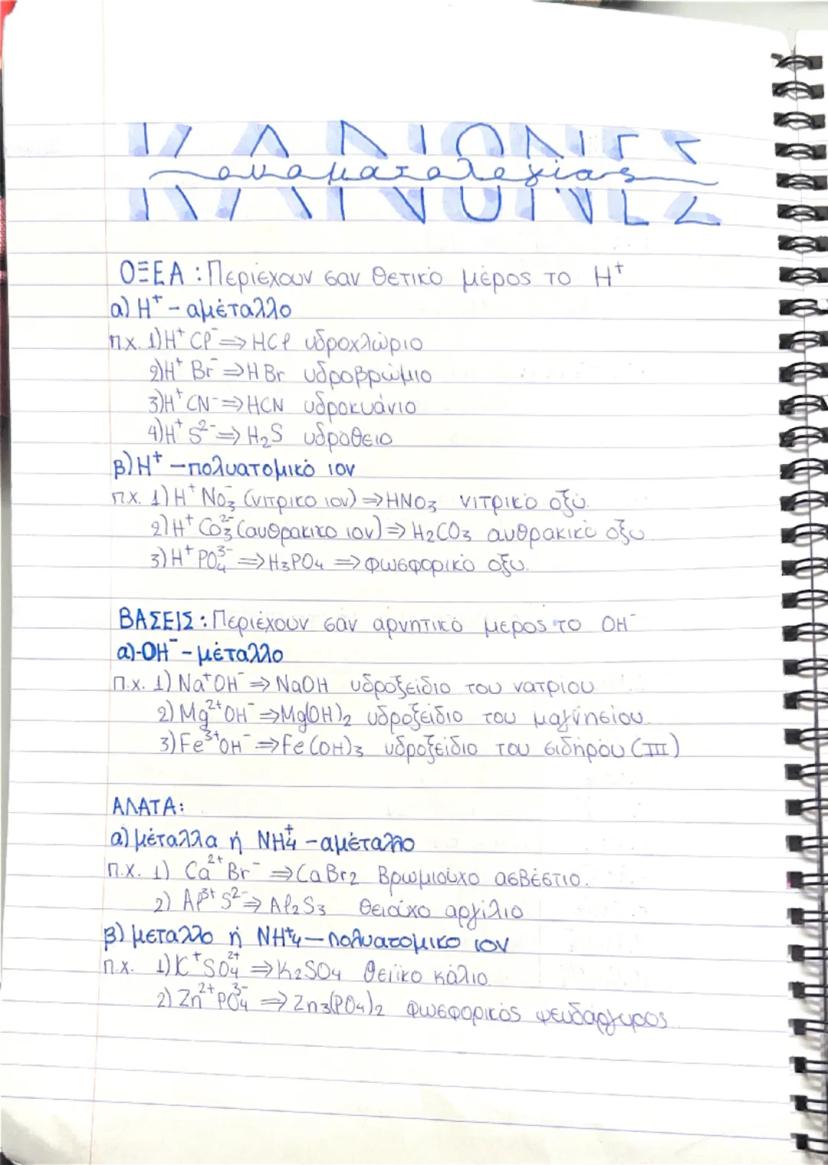 ΚΑΝΟΝΕΣ
ονοματολογίας
ΟΞΕΑ : Περιέχουν σαν θετικό μέρος το H⁺
α) H⁺ - αμέταλλο
π.χ. 1) H⁺ Cl⁻ ⇒ HCl υδροχλώριο
2) H⁺ Br⁻ ⇒ HBr υδροβρώμιο
3) H⁺ CN⁻ ⇒ HCN υδροκυάνιο
4) H⁺ S²⁻ ⇒ H₂S υδρόθειο
β) H⁺ - πολυατομικό ιον
π.χ. 1) H⁺ NO₃⁻ (νιτρικο ιον) ⇒ HNO₃ νιτρικό οξύ.
2) H⁺ CO₃²⁻ (ανθρακικο ιον) ⇒ H₂CO₃ ανθρακικό οξυ
3) H⁺ PO₄³⁻ ⇒ H₃PO₄ ⇒ φωσφορικό οξυ.
ΒΑΣΕΙΣ : Περιέχουν σαν αρνητικό μερος το OH⁻
α) -OH⁻ - μέταλλο
π.χ. 1) Na⁺OH⁻ ⇒ NaOH υδροξείδιο του νατριου
2) Mg²⁺OH⁻ ⇒ Mg(OH)₂ υδροξείδιο του μαγνησίου.
3) Fe³⁺OH⁻ ⇒ Fe(OH)₃ υδροξείδιο του σιδήρου (III)
ΑΛΑΤΑ :
α) μέταλλα ή NH₄⁺ - αμέταλλο
π.χ. 1) Ca²⁺ Br⁻ ⇒ CaBr₂ Βρωμιούχο ασβέστιο.
2) Al³⁺ S²⁻ ⇒ Al₂S₃ θειούχο αργίλιο
β) μεταλλο ή NH⁺₄ - πολυατομικο ιον
π.χ. 1) K⁺SO₄²⁺ ⇒ K₂SO₄ θειϊκο κάλιο
2) Zn²⁺PO₄³⁻ ⇒ Zn₃(PO₄)₂ φωσφορικός ψευδάργυρος